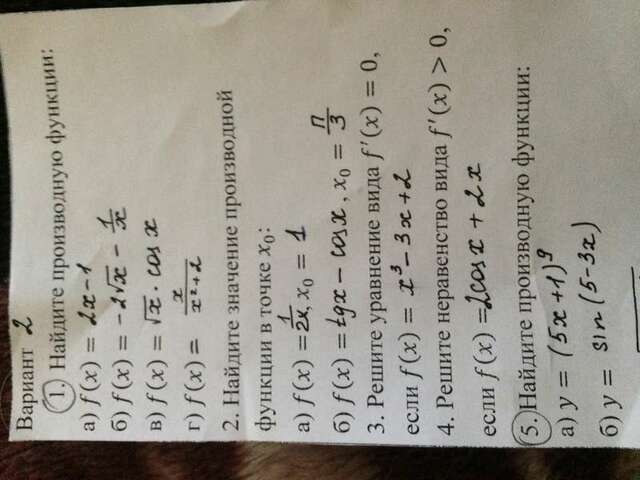 Вариант 2
1. Найдите производную функции:
а) f(x) = 2x-1
б) f(x) = -2√x - 1/x
в) f(x) = √x · cos x
г) f(x) = x/(x²+2)
2. Найдите значение производной
функции в точке x₀:
а) f(x) = 1/2x, x₀ = 1
б) f(x) = tgx - cosx, x₀ = π/3
3. Решите уравнение вида f'(x) = 0,
если f(x) = x³ - 3x + 2
4. Решите неравенство вида f'(x) > 0,
если f(x) = 2cosx + 2x
5. Найдите производную функции:
а) y = (5x+1)⁹
б) y = sin(5-3x)